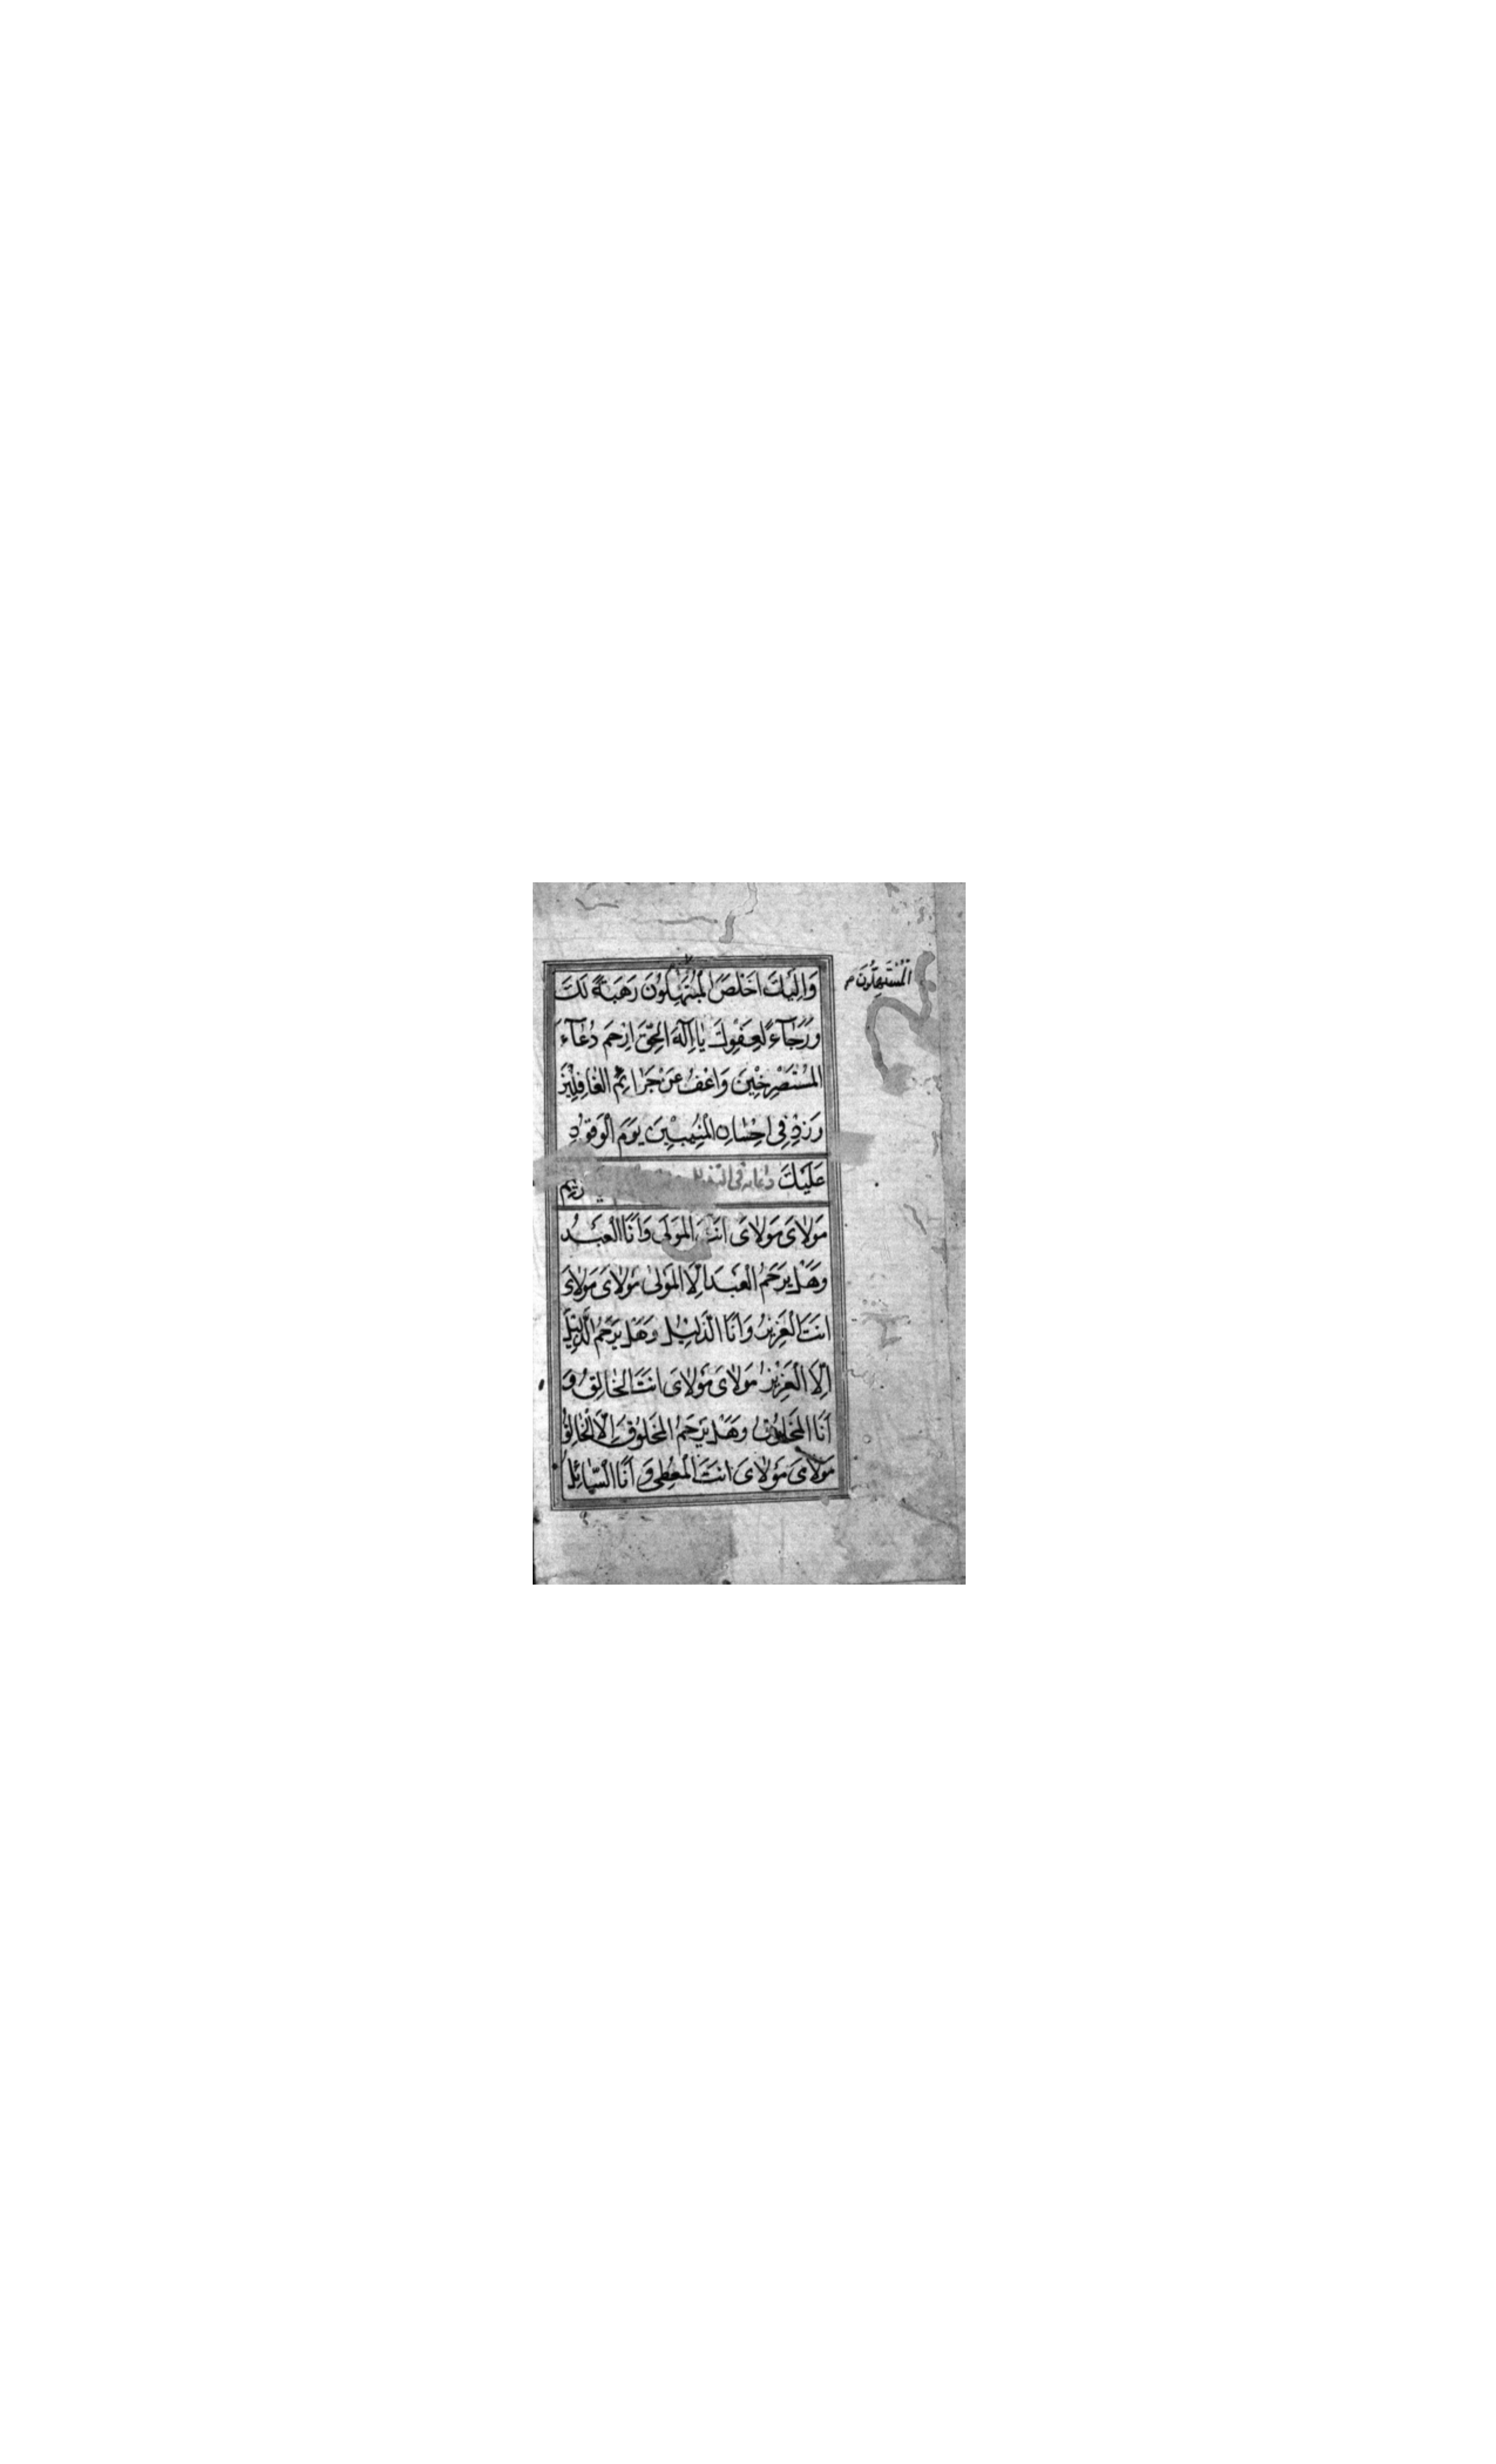 وَاِلَيْكَ اَخْلَصَ الْمُبْتَهِلُونَ رَهْبَةً لَكَ
الْمُسْتَهِلُّونَ م
وَرَجَآءً لِعَفْوِكَ يَا اِلٰهَ الْحَقِّ اِرْحَمْ دُعَآءَ
الْمُسْتَصْرِخِيْنَ وَاعْفُ عَنْ جَرَائِمِ الْغَافِلِيْنَ
وَزِدْ فِي اِحْسَانِ الْمُنِيْبِيْنَ يَوْمَ الْوُفُوْدِ
عَلَيْكَ دعائه في
مَوْلَايَ مَوْلَايَ اَنْتَ الْمَوْلَى وَاَنَا الْعَبْدُ
وَهَلْ يَرْحَمُ الْعَبْدَ اِلَّا الْمَوْلٰى مَوْلَايَ مَوْلَايَ
اَنْتَ الْعَزِيْزُ وَاَنَا الذَّلِيْلُ وَهَلْ يَرْحَمُ الذَّلِيْلَ
اِلَّا الْعَزِيْزُ مَوْلَايَ مَوْلَايَ اَنْتَ الْخَالِقُ وَ
اَنَا الْمَخْلُوْقُ وَهَلْ يَرْحَمُ الْمَخْلُوْقَ اِلَّا الْخَالِقُ
مَوْلَايَ مَوْلَايَ اَنْتَ الْمُعْطِي وَ اَنَا السَّائِلُ